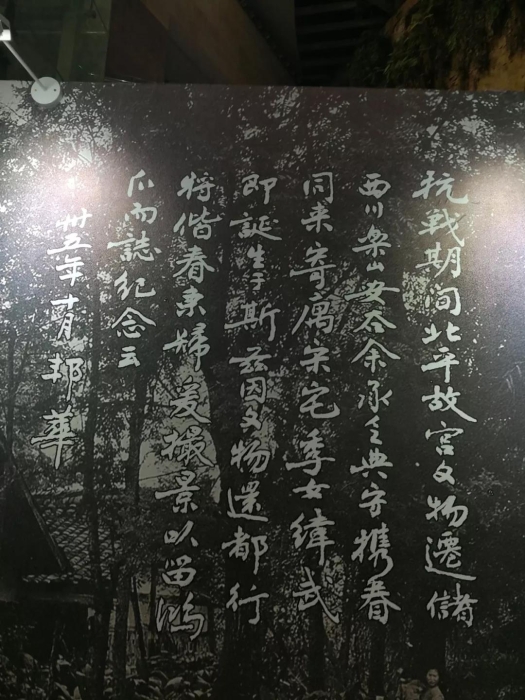 抗戰期间北平故宫文物遷儲
西川樂山安谷余承乏典守携眷
同来寄寓宋宅季女緯武
即誕生于斯兹因文物還都行
将偕眷東歸爰撮景以留鴻
爪而誌紀念云
卅五年十月邦華